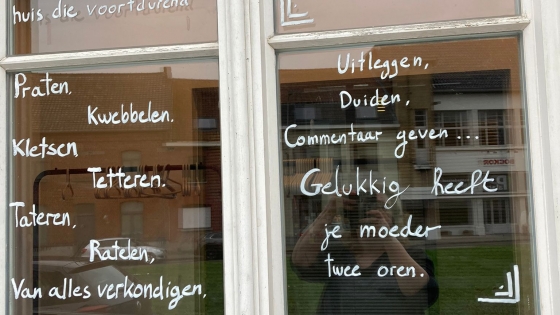 huis die voortdurend
Praten.
Kwebbelen.
Kletsen
Tetteren.
Tateren,
Ratelen,
Van alles verkondigen.
Uitleggen,
Duiden,
Commentaar geven...
Gelukkig heeft
je moeder
twee oren.